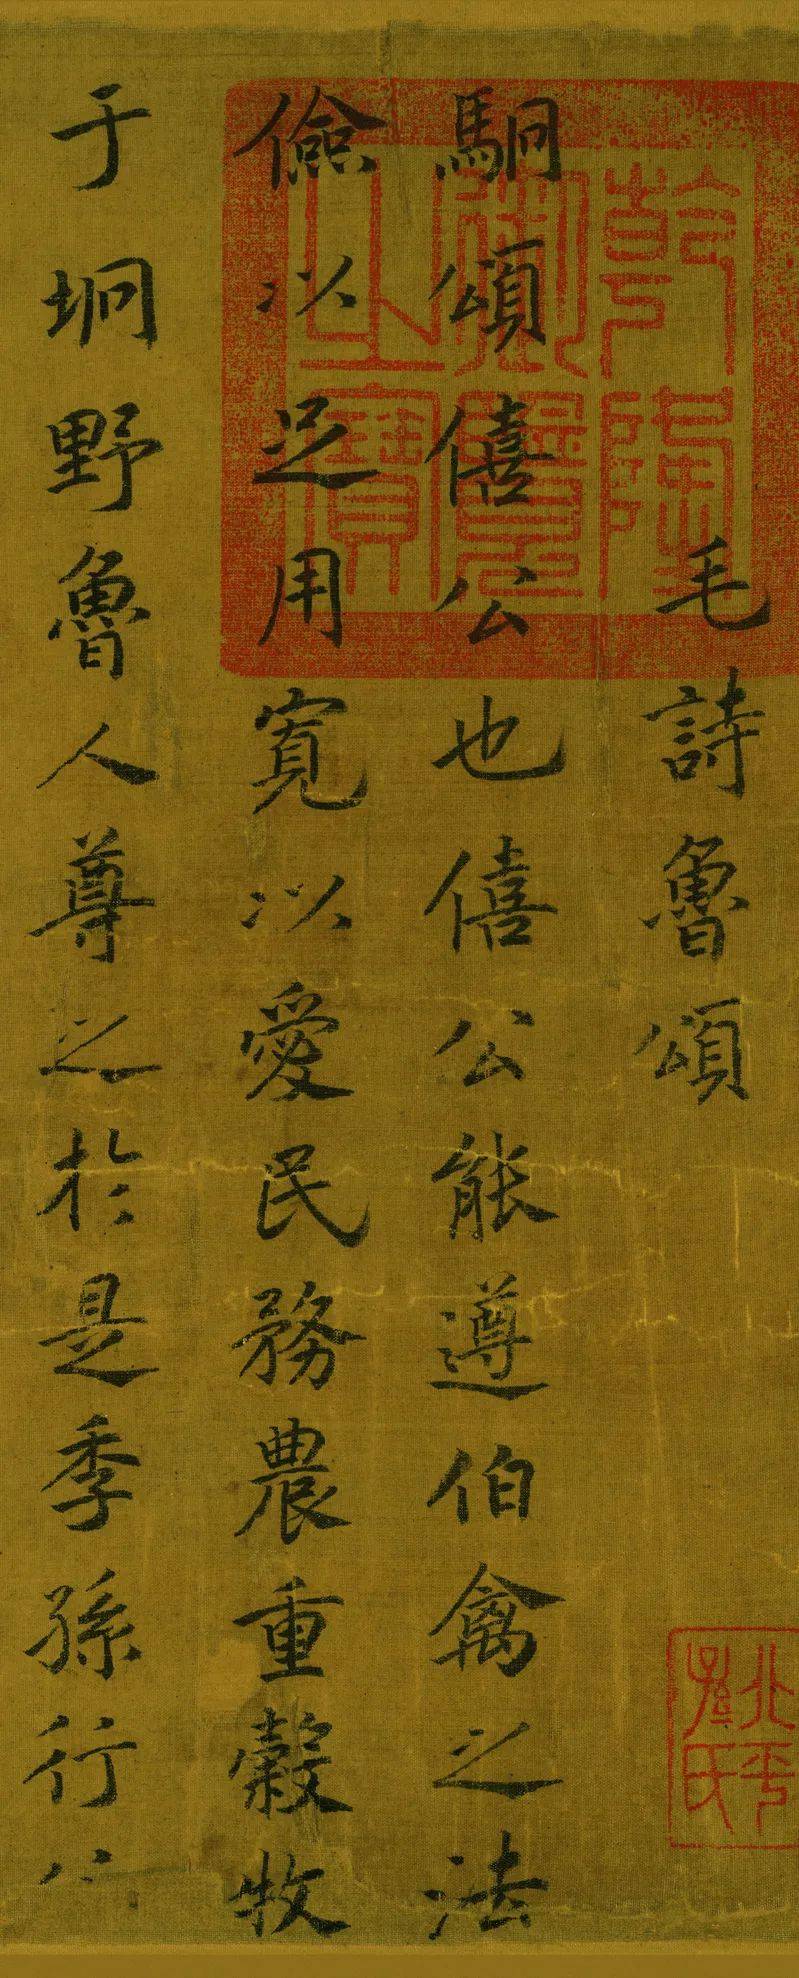 乾隆
御覽
之寶
毛詩魯頌
北平
孫氏
駉頌僖公也僖公能遵伯禽之法
儉以足用寬以愛民務農重穀牧
于坰野魯人尊之於是季孫行